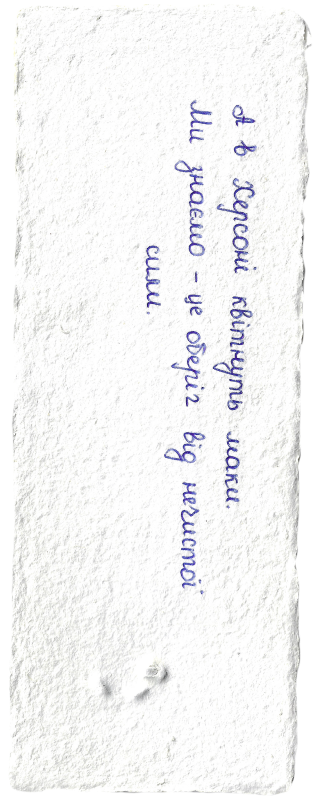 А в Херсоні квітнуть маки.
Ми знаємо - це оберіг від нечистої
сили.